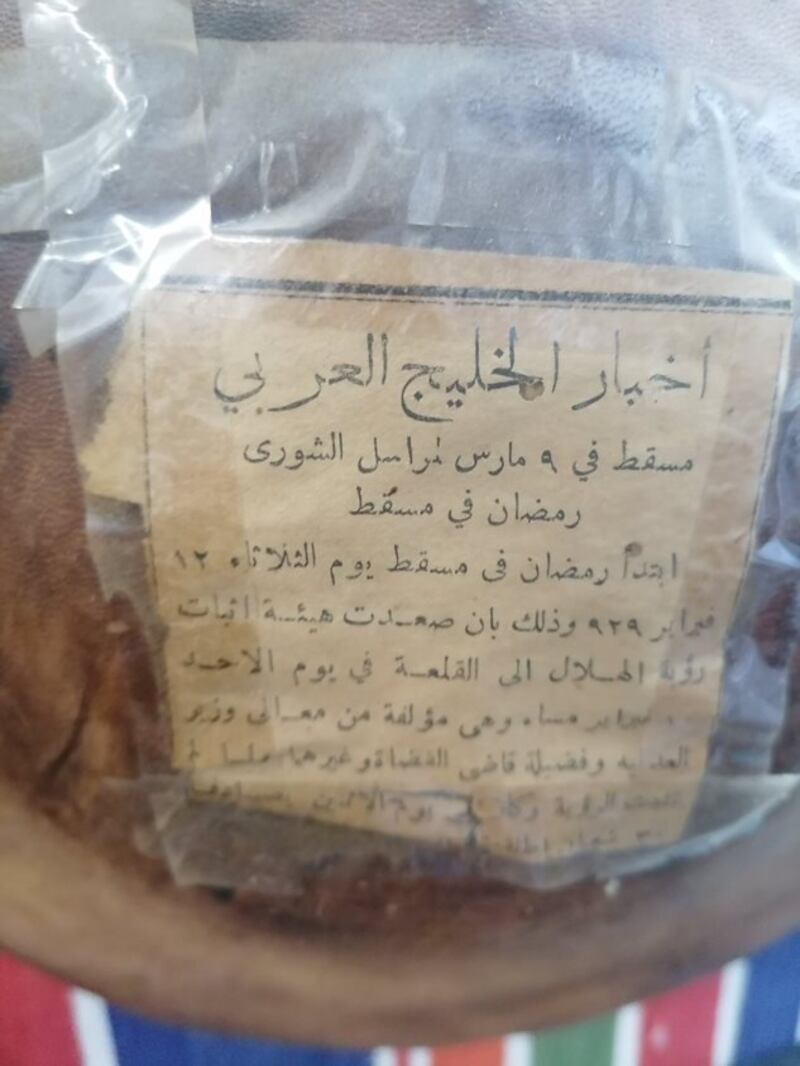 أخبار الخليج العربي
مسقط في ٩ مارس لمراسل الشورى
رمضان في مسقط
ابتدأ رمضان فى مسقط يوم الثلاثاء ١٢
فبراير ٩٢٩ وذلك بان صعدت هيئة اثبات
رؤية الهلال الى القلعة في يوم الاحد
فبراير مساء وهى مؤلفة من معالى وزير
العدليه وفضيلة قاضى القضاة وغيرهما فلما لم
تثبت الرؤية يوم الاثنين
٣٠ شعبان